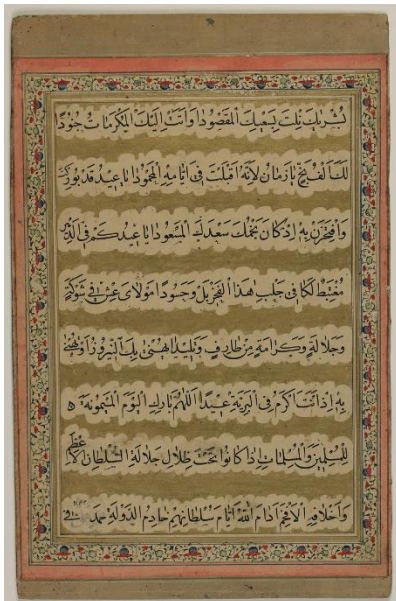 بشريك نلت بسعيك المقصودا وأتت إليك المكرمات جودا
لك الفخ يا زمان لأنه اقبلت في أيامه المحمودا يا عيد قد بوركت
وافخرن به إذ كان نجمك سعدك المسعودا يا عيد كم في الدهر
مغتبط لكا في جلب هذا الفخر بل وحسودا مولاى عش في شوكة
وجلالة وكرامة من طارف وتليدا اهنى بك النيروز أو تهنى
به إذ أنت أكرم في البرية عيدا اللهم بارك اليوم الميمونة
للمسلمين والمسلمات إذ كانوا تحت ظلال جلالة السلطان الأعظم
وأخلافه الأفخم ادام الله أيام سلطانهم خادم الدولة محمد